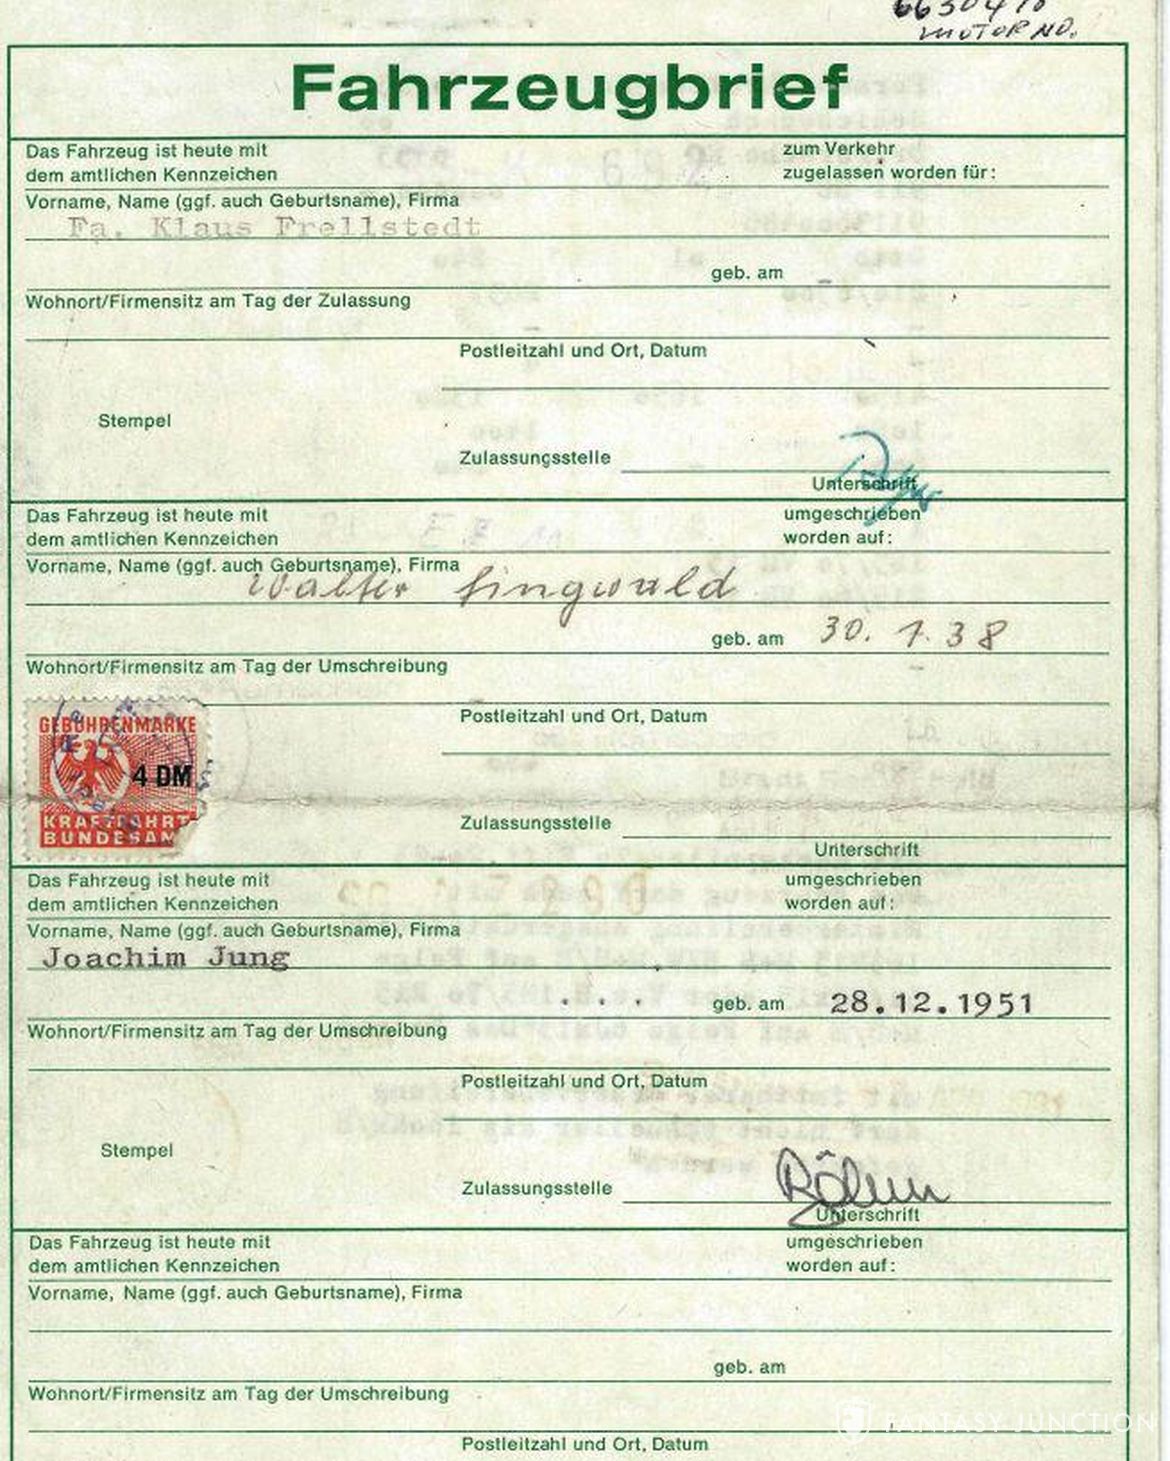 MOTOR NO.
Fahrzeugbrief
Das Fahrzeug ist heute mit
dem amtlichen Kennzeichen
zum Verkehr
zugelassen worden für:
Vorname, Name (ggf. auch Geburtsname), Firma
Fa. Klaus Frellstedt
geb. am
Wohnort/Firmensitz am Tag der Zulassung
Postleitzahl und Ort, Datum
Stempel
Zulassungsstelle
Unterschrift
Das Fahrzeug ist heute mit
dem amtlichen Kennzeichen
umgeschrieben
worden auf:
Vorname, Name (ggf. auch Geburtsname), Firma
Walter Singwald
geb. am 30. 1. 38
Wohnort/Firmensitz am Tag der Umschreibung
Postleitzahl und Ort, Datum
GEBÜHRENMARKE
4 DM
KRAFTFAHRT
BUNDESAM
Zulassungsstelle
Unterschrift
Das Fahrzeug ist heute mit
dem amtlichen Kennzeichen
umgeschrieben
worden auf:
Vorname, Name (ggf. auch Geburtsname), Firma
Joachim Jung
geb. am 28.12.1951
Wohnort/Firmensitz am Tag der Umschreibung
Postleitzahl und Ort, Datum
Stempel
Zulassungsstelle
Unterschrift
Das Fahrzeug ist heute mit
dem amtlichen Kennzeichen
umgeschrieben
worden auf:
Vorname, Name (ggf. auch Geburtsname), Firma
geb. am
Wohnort/Firmensitz am Tag der Umschreibung
FANTASY JUNCTION
Postleitzahl und Ort, Datum